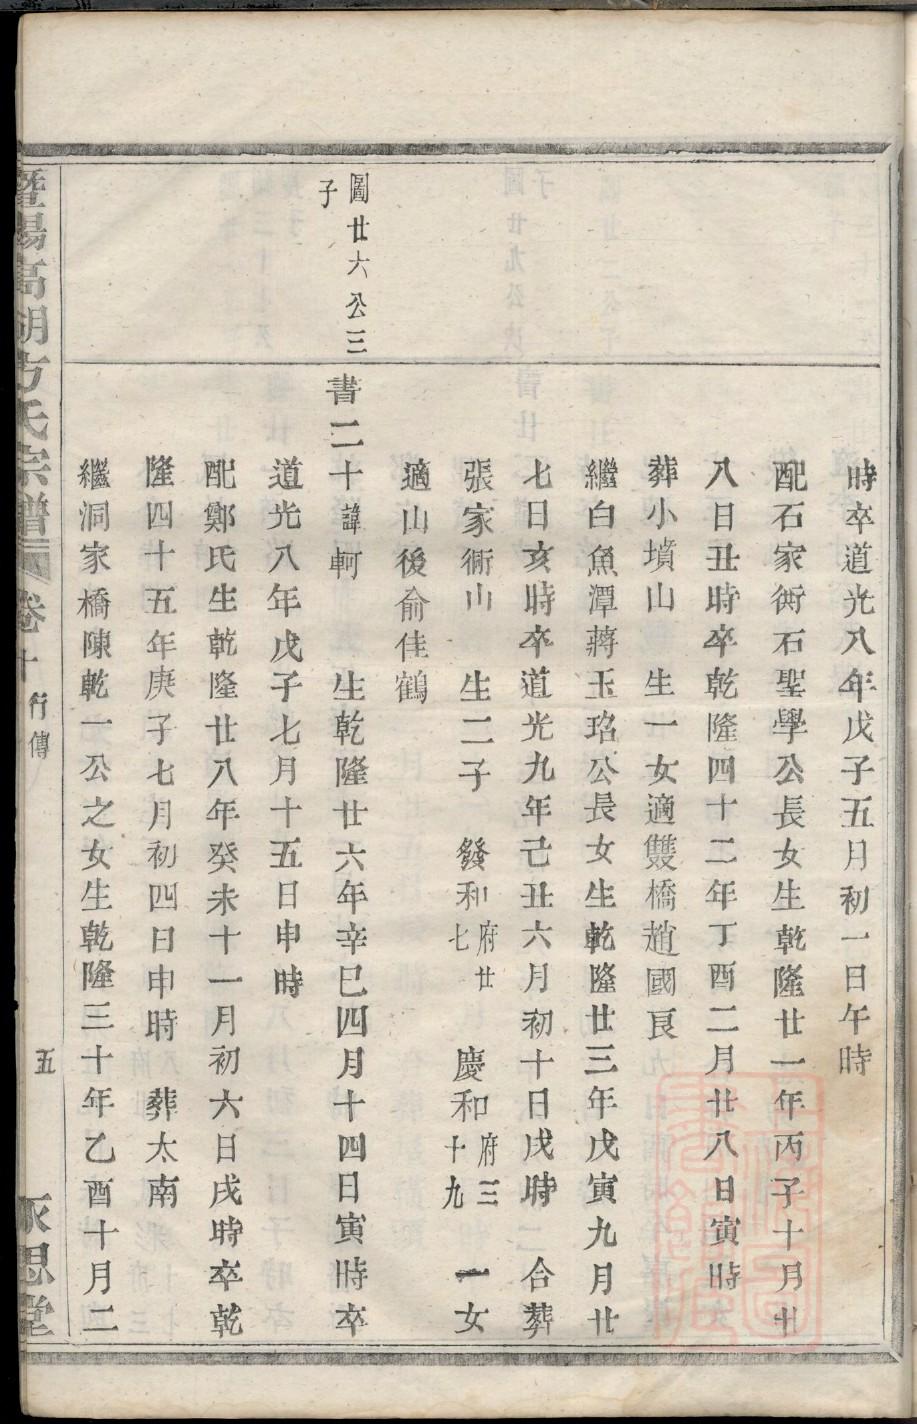 時卒道光八年戊子五月初一日午時
配石家衖石聖學公長女生乾隆廿一年丙子十月十
八日丑時卒乾隆四十二年丁酉二月廿八日寅時
葬小墳山　生一女適雙橋趙國良
繼白魚潭蔣玉珞公長女生乾隆廿三年戊寅九月廿
七日亥時卒道光九年己丑六月初十日戌時　合葬
張家衕山　生二子　發和府廿七　慶和府三十九　一女
適山後俞佳鶴
圖廿六公三子
書二十諱軻　生乾隆廿六年辛巳四月十四日寅時卒
道光八年戊子七月十五日申時
配鄭氏生乾隆廿八年癸未十一月初六日戌時卒乾
隆四十五年庚子七月初四日申時　葬太南
繼洞家橋陳乾一公之女生乾隆三十年乙酉十月二
暨陽高湖方氏宗譜　卷十　行傳　五　永思堂